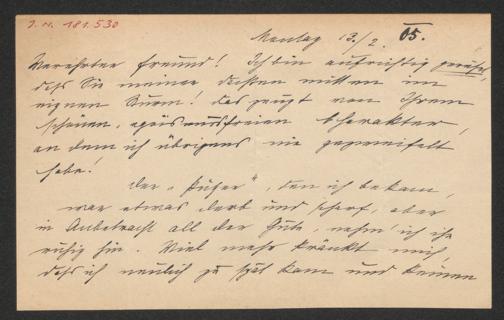 J. N. 181.530
Montag 13./2. 05.
Verehrter Freund! Ich bin aufrichtig gerührt,
daß Sie meiner dachten mitten im
eignen Sturm! Das zeugt von Ihrem
schönen, freien Charakter,
an dem ich übrigens nie gezweifelt
habe!
Der „ “, den ich bekam,
war etwas derb und scharf, aber
in Anbetracht all der Güte, nehm' ich ihn
ruhig hin. Viel mehr kränkt mich,
daß ich neulich zu spät kam und keinen